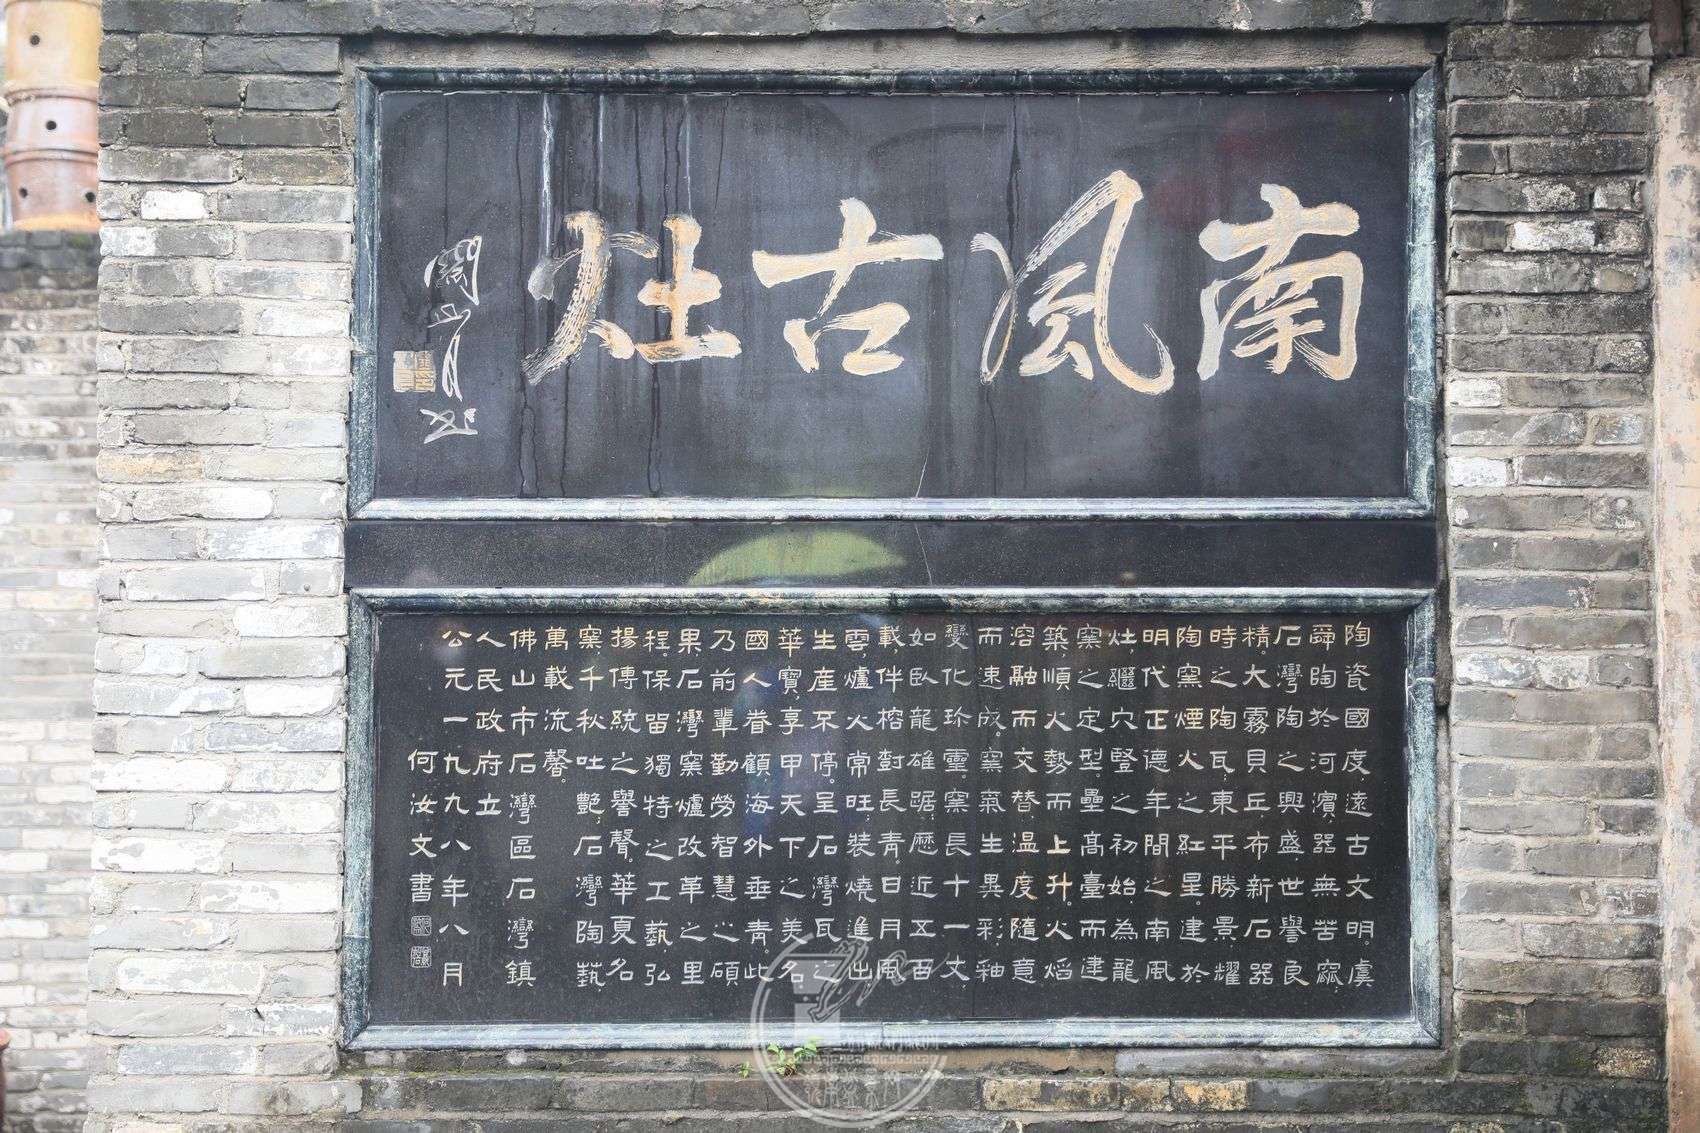 南風古灶
關山月
陶瓷國度遠古文明。虞
舜陶於河濱，器無苦窳；
石灣陶之興盛，世譽良
精。大霧貝丘，布新石器
時之陶瓦；東平勝景，耀
陶窯煙火之紅星。建於
明代正德年間之南風
灶，繼穴竪之初始，為龍
窯之定型。壘高臺而建
築，順火勢而上升。火焰
溶融而交替，溫度隨意
而速成。窯氣生異彩，釉
變化珍靈。窯長十一丈，
如臥龍雄踞。歷近五百
載，伴榕對長青。日月風
雲，爐火常旺，裝燒進出，
生產不停。呈石灣瓦之
華寶，享甲天下之美名，
國人眷顧，海外垂青。此
乃前輩勤勞智慧之碩
果，石灣窯爐改革之里
程。保留獨特之工藝，弘
揚傳統之譽聲。華夏名
窯千秋吐艷，石灣陶藝，
萬載流馨。
佛山市石灣區石灣鎮
人民政府立
公元一九九八年八月
何汝文書